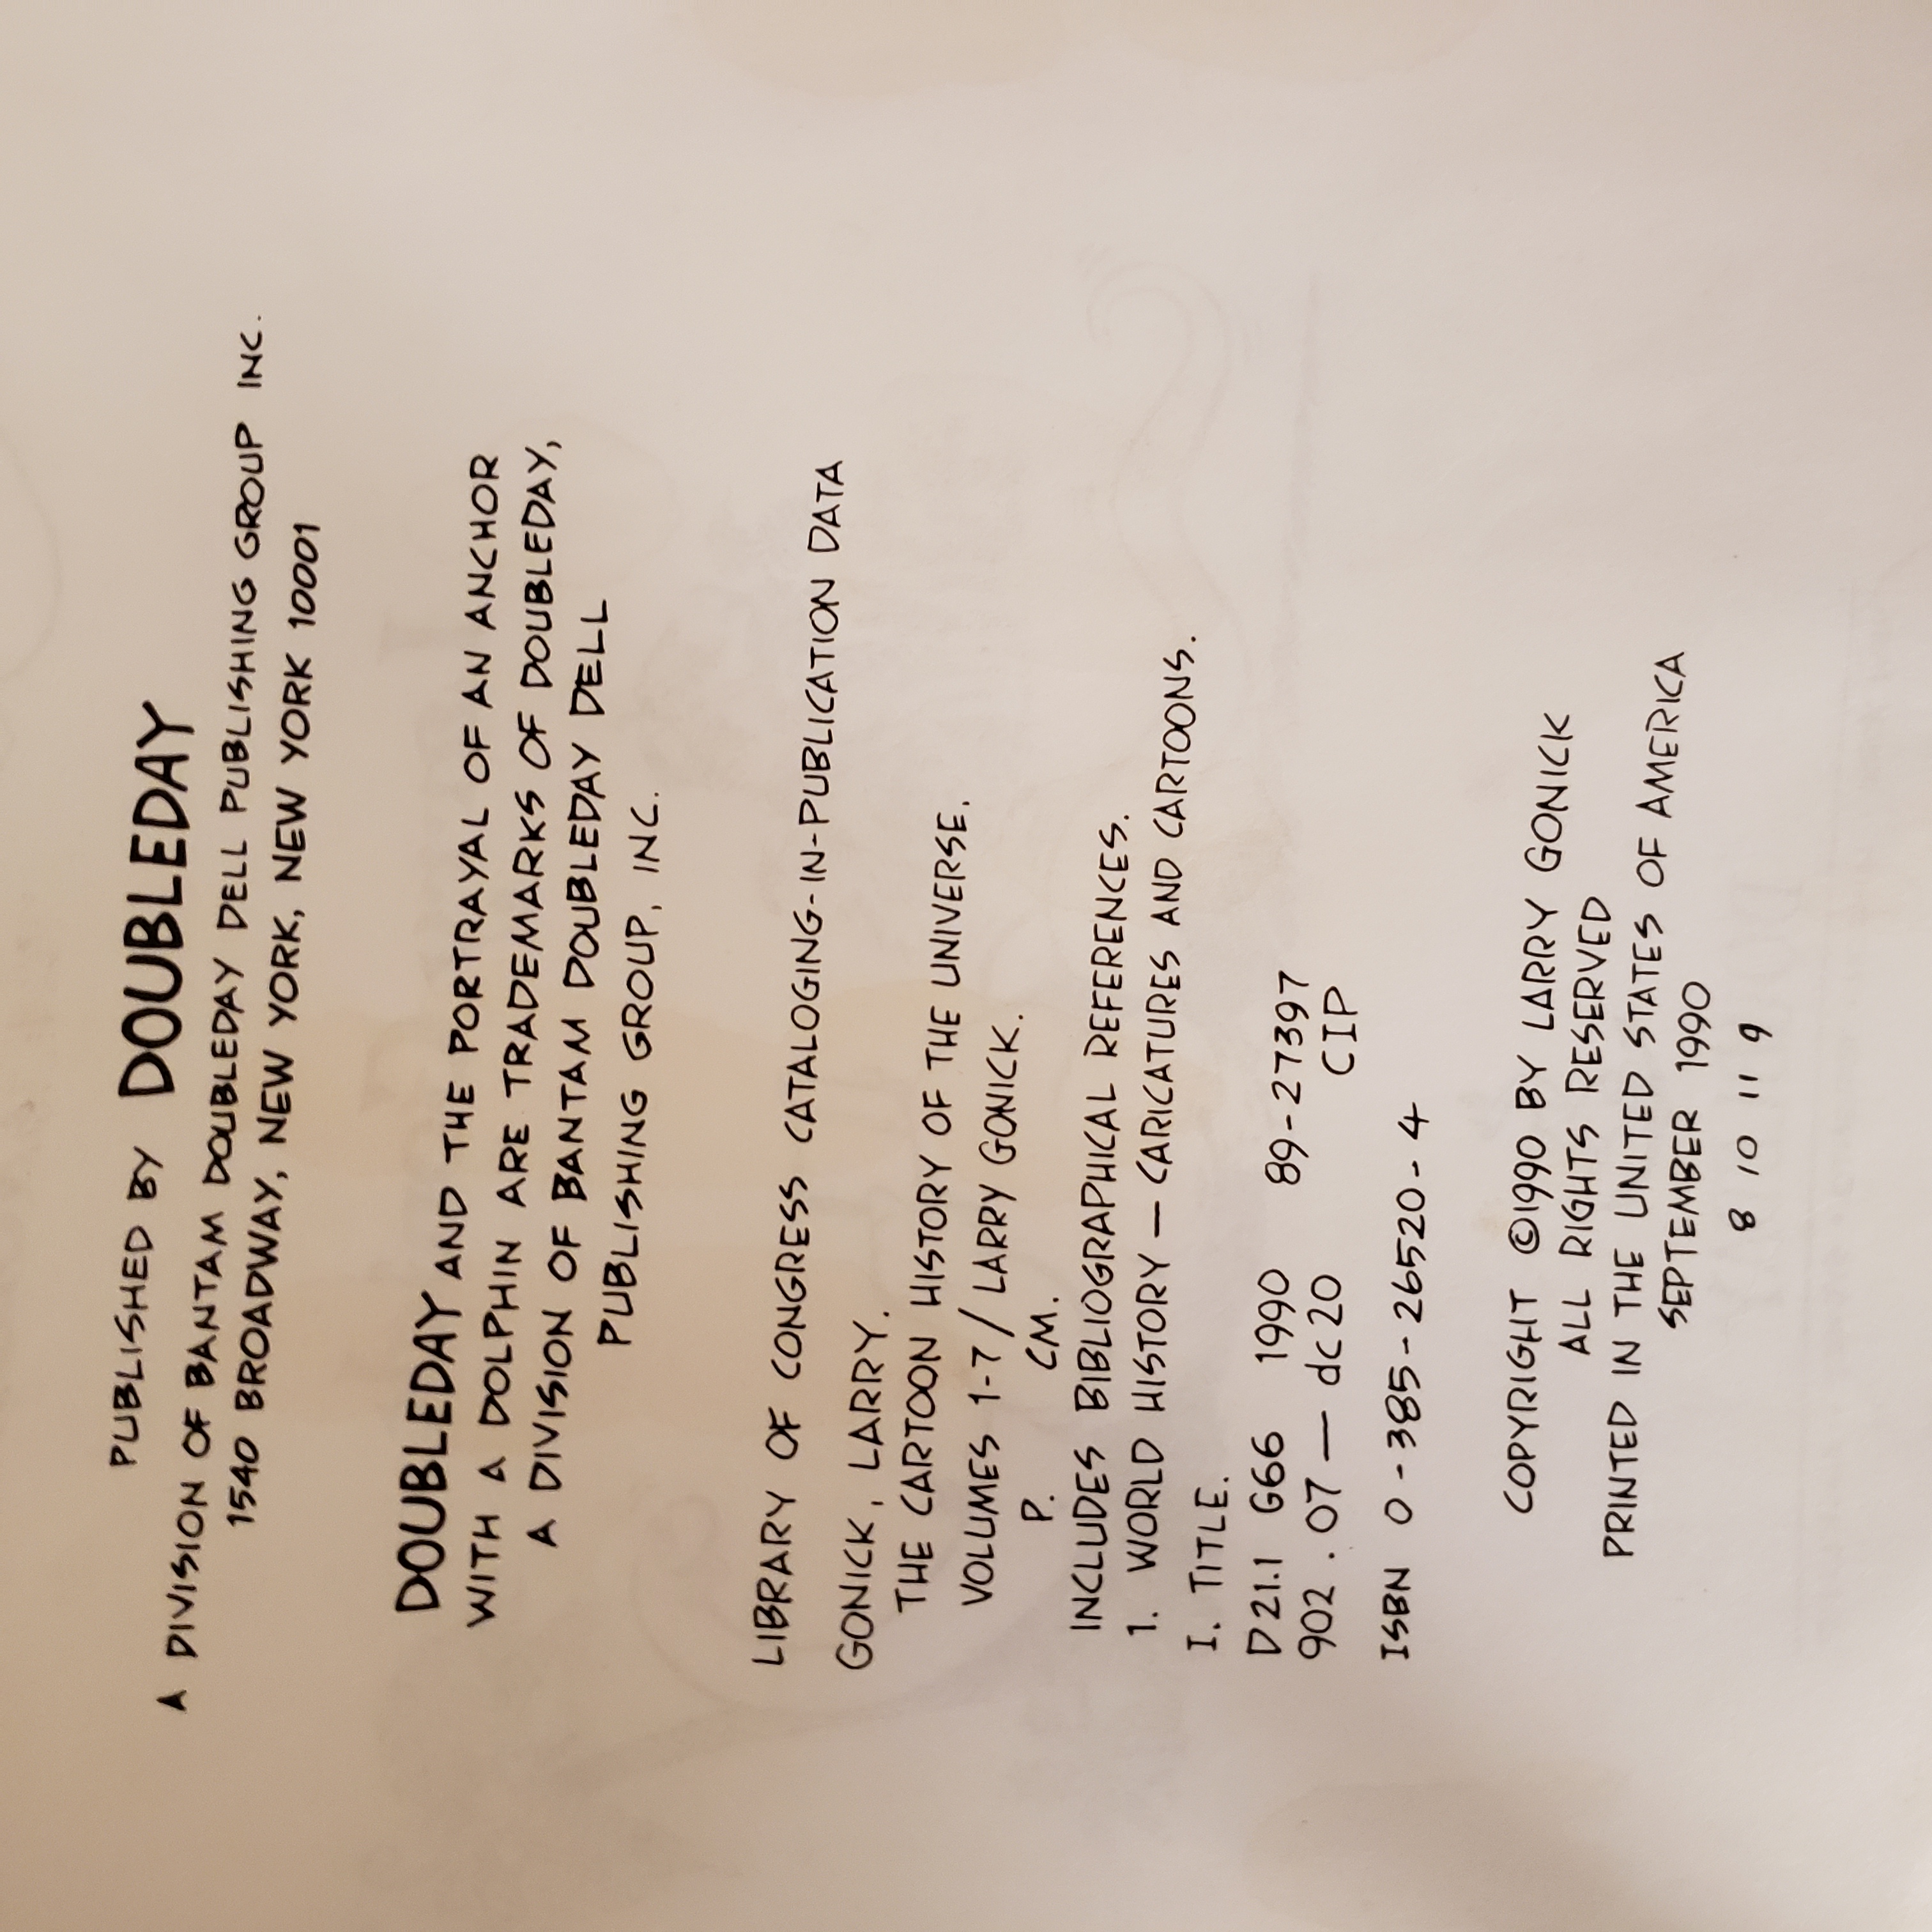 PUBLISHED BY DOUBLEDAY
A DIVISION OF BANTAM DOUBLEDAY DELL PUBLISHING GROUP INC.
1540 BROADWAY, NEW YORK, NEW YORK 10001
DOUBLEDAY AND THE PORTRAYAL OF AN ANCHOR
WITH A DOLPHIN ARE TRADEMARKS OF DOUBLEDAY,
A DIVISION OF BANTAM DOUBLEDAY DELL
PUBLISHING GROUP, INC.
LIBRARY OF CONGRESS CATALOGING-IN-PUBLICATION DATA
GONICK, LARRY.
THE CARTOON HISTORY OF THE UNIVERSE.
VOLUMES 1-7 / LARRY GONICK.
P. CM.
INCLUDES BIBLIOGRAPHICAL REFERENCES.
1. WORLD HISTORY — CARICATURES AND CARTOONS.
I. TITLE.
D21.1 G66 1990 89-27397
902.07 — dc20 CIP
ISBN 0-385-26520-4
COPYRIGHT ©1990 BY LARRY GONICK
ALL RIGHTS RESERVED
PRINTED IN THE UNITED STATES OF AMERICA
SEPTEMBER 1990
8 10 11 9